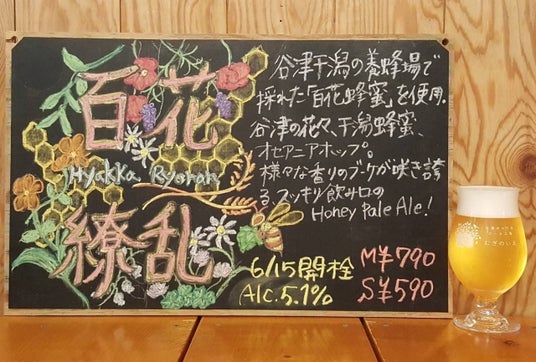 百花
Hyakka Ryoran
繚乱
谷津干潟の養蜂場で
採れた「百花蜂蜜」を使用。
谷津の花々、干潟蜂蜜、
オセアニアホップ。
様々な香りのブーケが咲き誇
る、スッキリ飲み口の
Honey Pale Ale!
6/15開栓
Alc.5.1%
M¥790
S¥590
むぎのいえ